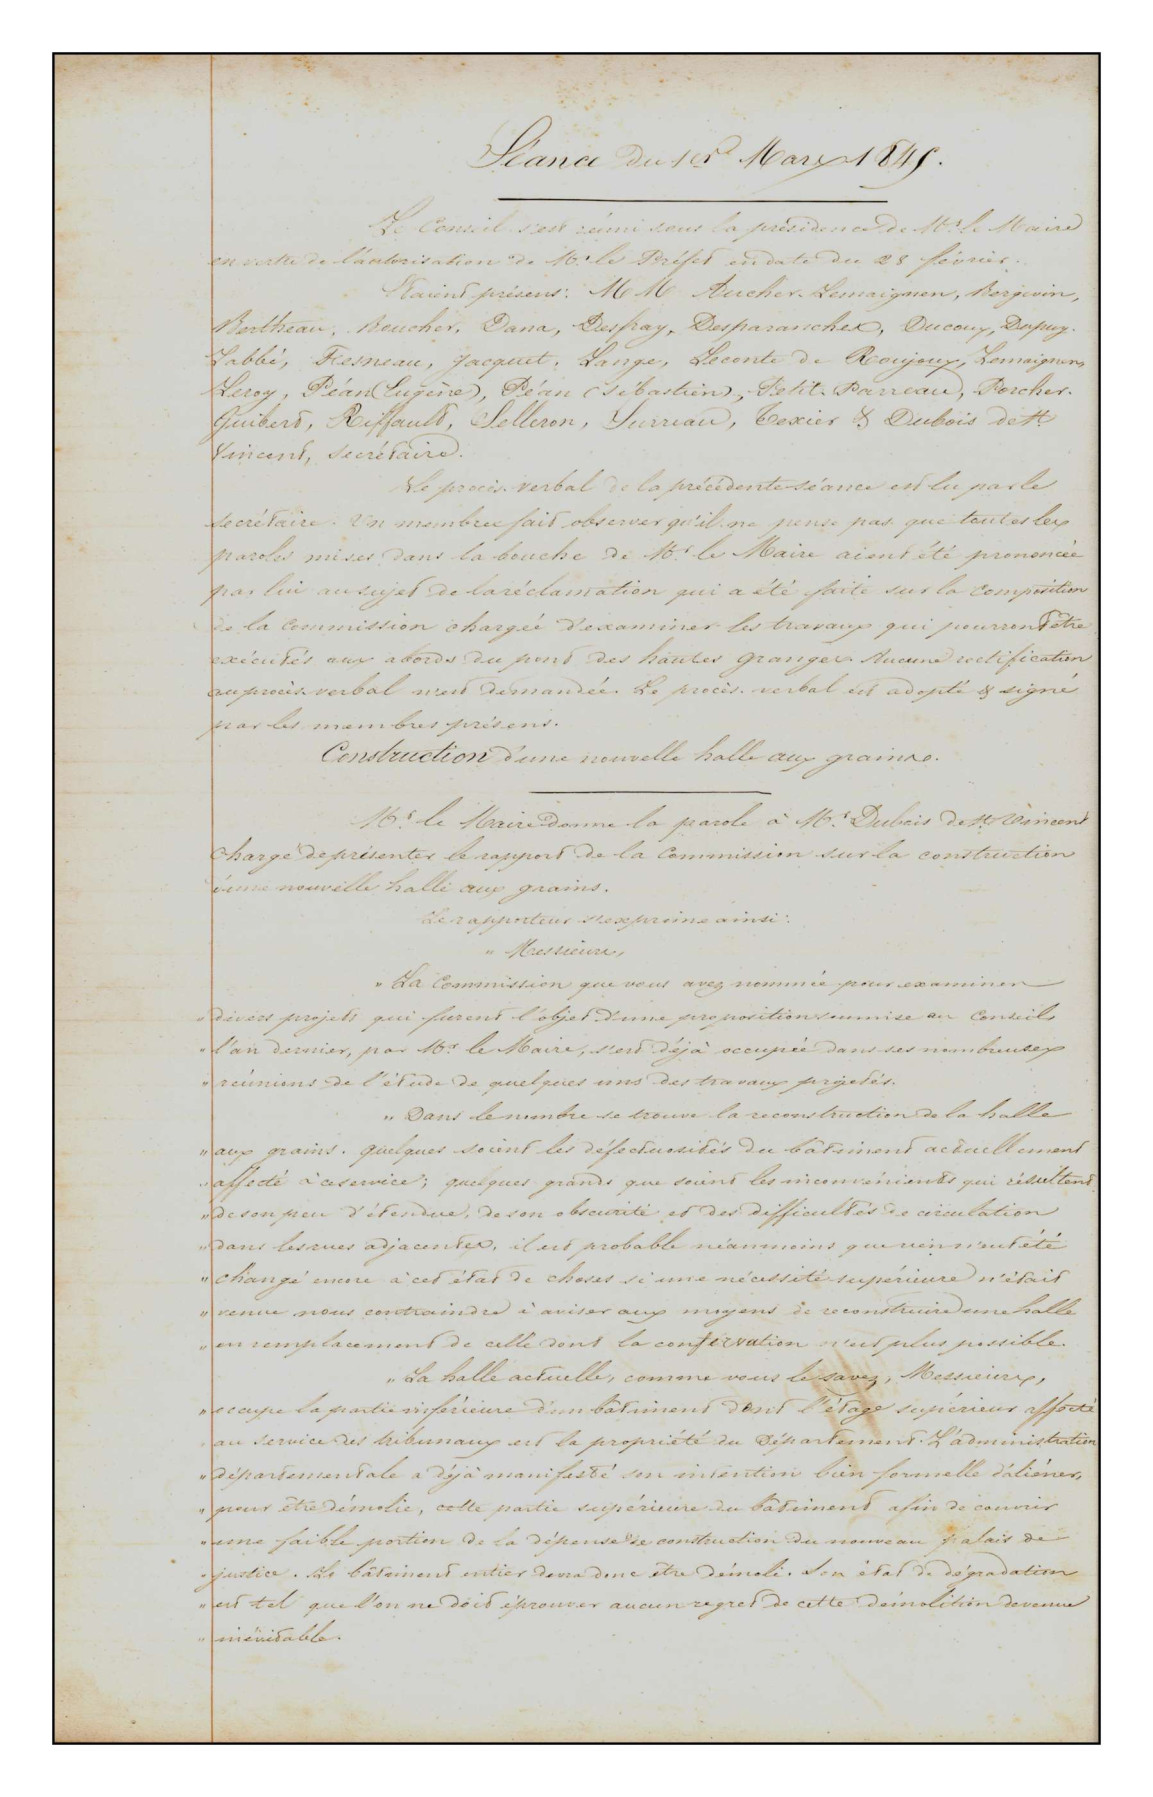 Séance du 1er Mars 1845.
Le Conseil s'est réuni sous la présidence de Mr. le Maire
en vertu de l'autorisation de Mr. le Préfet en date du 28 février.
Etaient présens: MM Aucher-Lemaignen, Bergevin,
Bertheau, Boucher, Dana, Desfray, Desparanches, Ducoux, Dupuy,
Labbé, Fesneau, Jacquet, Lange, Leconte de Roujoux, Lemaignen,
Leroy, Péan (Eugène), Péan (Sébastien), Petit-Parreau, Porcher-
Guibert, Riffault, Selleron, Surreau, Texier & Dubois de St.
Vincent, secrétaire.
Le procès-verbal de la précédente séance est lu par le
secrétaire. Un membre fait observer qu'il ne pense pas que toutes les
paroles mises dans la bouche de Mr. le Maire aient été prononcée
par lui au sujet de la réclamation qui a été faite sur la composition
de la commission chargée d'examiner les travaux qui pourront être
exécutés aux abords du pont des hautes granges. Aucune rectification
au procès-verbal n'est demandée. Le procès-verbal est adopté & signé
par les membres présens.
Construction d'une nouvelle halle aux grains.
Mr. le Maire donne la parole à Mr. Dubois de St. Vincent
chargé de présenter le rapport de la Commission sur la construction
d'une nouvelle halle aux grains.
Le rapporteur s'exprime ainsi:
" Messieurs,
" La Commission que vous avez nommée pour examiner
" divers projets qui furent l'objet d'une proposition soumise au Conseil
" l'an dernier, par Mr. le Maire, s'est déjà occupée dans ses nombreuses
" réunions de l'étude de quelques uns des travaux projetés.
" Dans le nombre se trouve la reconstruction de la halle
" aux grains. Quelques soient les défectuosités du bâtiment actuellement
" affecté à ce service; quelques grands que soient les inconvénients qui résultent
" de son peu d'étendue, de son obscurité et des difficultés de circulation
" dans les rues adjacentes, il est probable néanmoins que rien n'eut été
" changé encore à cet état de choses si une nécessité supérieure n'était
" venue nous contraindre à aviser aux moyens de reconstruire une halle
" en remplacement de celle dont la conservation n'est plus possible.
" La halle actuelle, comme vous le savez, Messieurs,
" occupe la partie inférieure d'un bâtiment dont l'étage supérieur affecté
" au service des tribunaux est la propriété du Département. L'administration
" départementale a déjà manifesté son intention bien formelle d'aliéner,
" pour être démolie, cette partie supérieure du bâtiment afin de couvrir
" une faible portion de la dépense de construction du nouveau palais de
" justice. Le bâtiment entier devra donc être démoli. Son état de dégradation
" est tel que l'on ne doit éprouver aucun regret de cette démolition devenue
" inévitable.